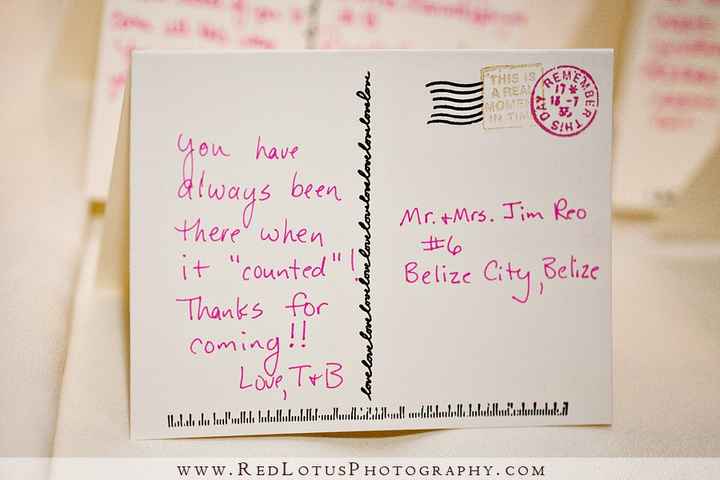 You have
always been
there when
it "counted"!
Thanks for
coming!!
Love, T+B
lovelovelovelovelovelovelovelovelovelovelovelove
THIS IS
A REAL
MOMENT
IN TIME
REMEMBER THIS DAY
17
Mr. + Mrs. Jim Reo
#6
Belize City, Belize
www.RedLotusPhotography.com